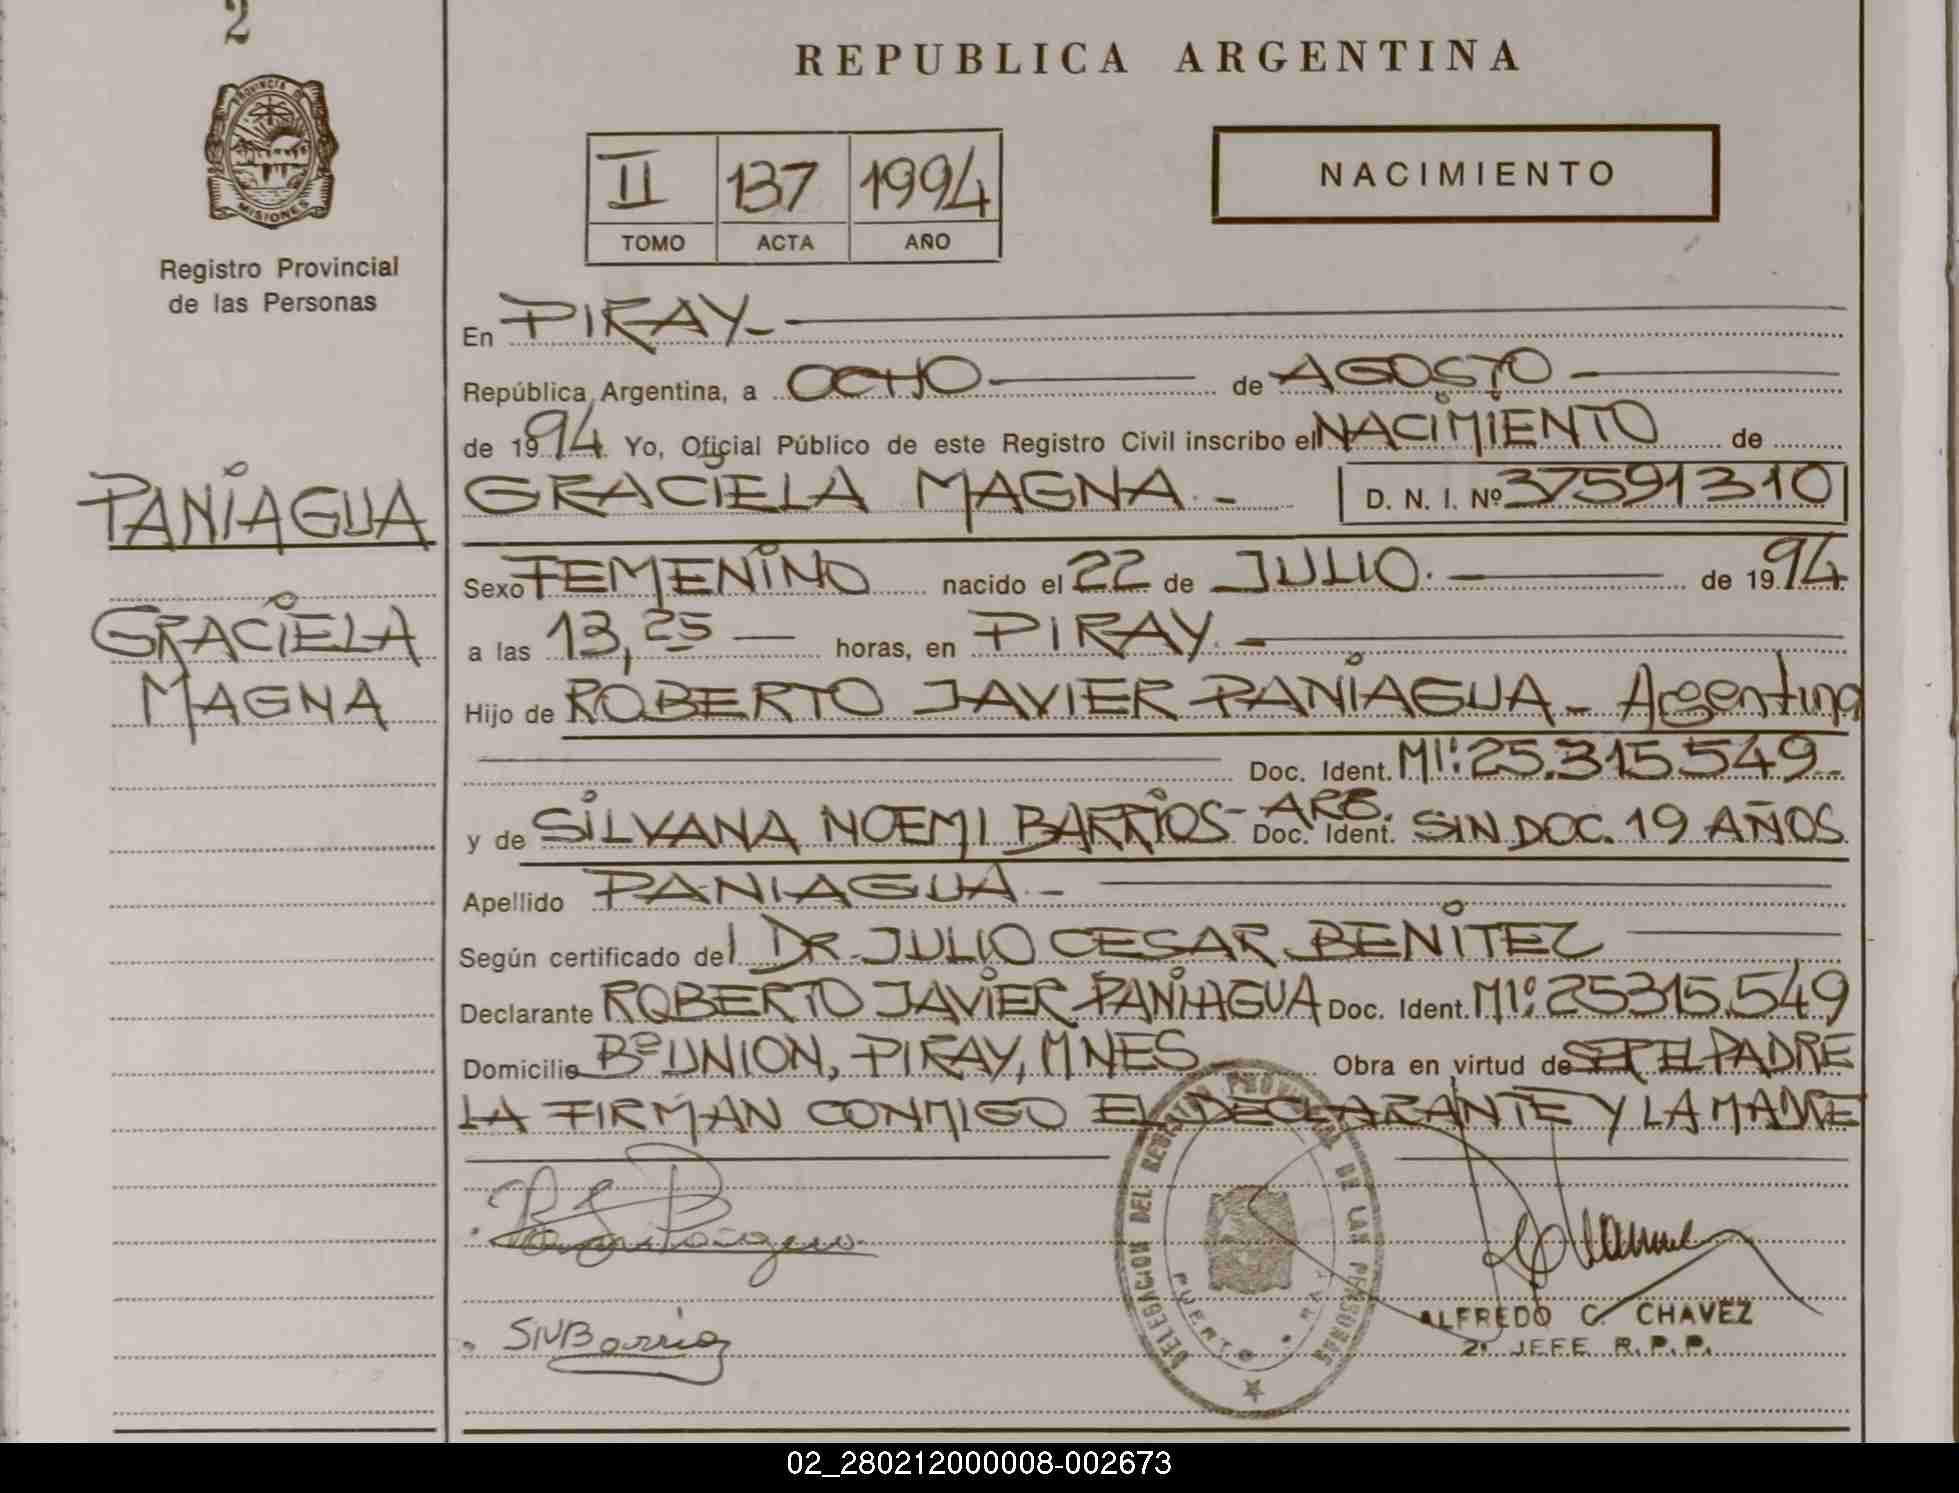 2
PROVINCIA DE
MISIONES
Registro Provincial
de las Personas
PANIAGUA
GRACIELA
MAGNA
REPUBLICA ARGENTINA
II 137 1994
TOMO ACTA AÑO
NACIMIENTO
En PIRAY.-
República Argentina, a OCHO de AGOSTO
de 1994 Yo, Oficial Público de este Registro Civil inscribo el NACIMIENTO de
GRACIELA MAGNA.- D. N. I. Nº 37591310
Sexo FEMENINO nacido el 22 de JULIO. de 1994
a las 13,25 horas, en PIRAY.-
Hijo de ROBERTO JAVIER PANIAGUA - Argentina
Doc. Ident. MI: 25.315.549.-
y de SILVANA NOEMI BARRIOS - ARG. Doc. Ident. SIN DOC. 19 AÑOS
Apellido PANIAGUA.-
Según certificado del DR. JULIO CESAR BENITEZ
Declarante ROBERTO JAVIER PANIAGUA Doc. Ident. MI: 25315.549
Domicilio Bº UNION, PIRAY, MNES Obra en virtud de SER EL PADRE
LA FIRMAN CONMIGO EL DECLARANTE Y LA MADRE
DELEGACION DEL REGISTRO PROVINCIAL DE LAS PERSONAS
SNBarrios
ALFREDO C. CHAVEZ
2º JEFE R.P.P.
02_280212000008-002673